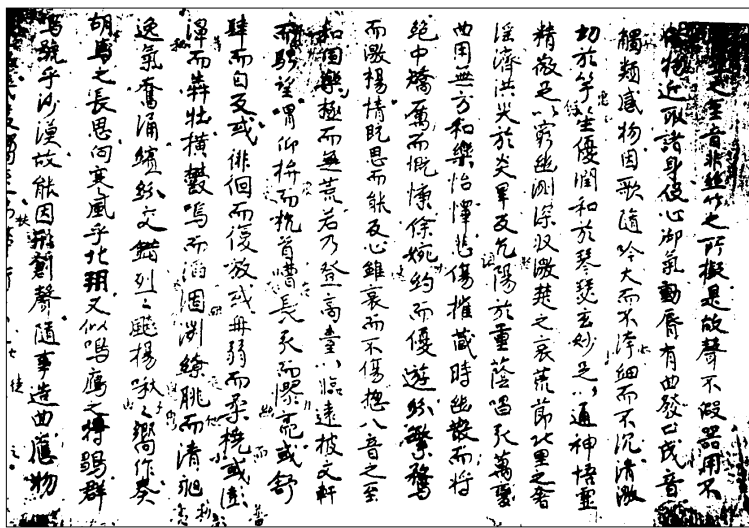 之至音非絲竹之所擬是故聲不假器用不
物近取諸身役心御氣動脣有曲發口成音
觸類感物因歌隨吟大而不洿細而不沉清激
切於竽笙優潤和於琴瑟玄妙足以通神悟靈
精微足以窮幽測深収激楚之哀荒節北里之奢
淫濟洪災於炎旱反亢陽於重蔭唱引萬變
曲用無方和樂怡懌悲傷摧藏時幽散而將
絕中矯厲而慨慷徐婉約而優遊紛繁騖
而激楊情既思而能反心雖哀而不傷揔八音之至
和固樂極而無荒若乃登高臺以臨遠披文軒
而騁望喟仰抃而抗首嘈長引而憀亮或舒
肆而自反或徘徊而復放或冉弱而柔撓或澎
濞而犇壯橫鬱鳴而滔涸冽繚朓而清昶
逸氣奮涌繽紛交錯列々飈楊啾々嚮作奏
胡馬之長思向寒風乎北朔又似鴻鴈之將鶵群
鳴號乎沙漠故能因形創聲隨事造曲應物